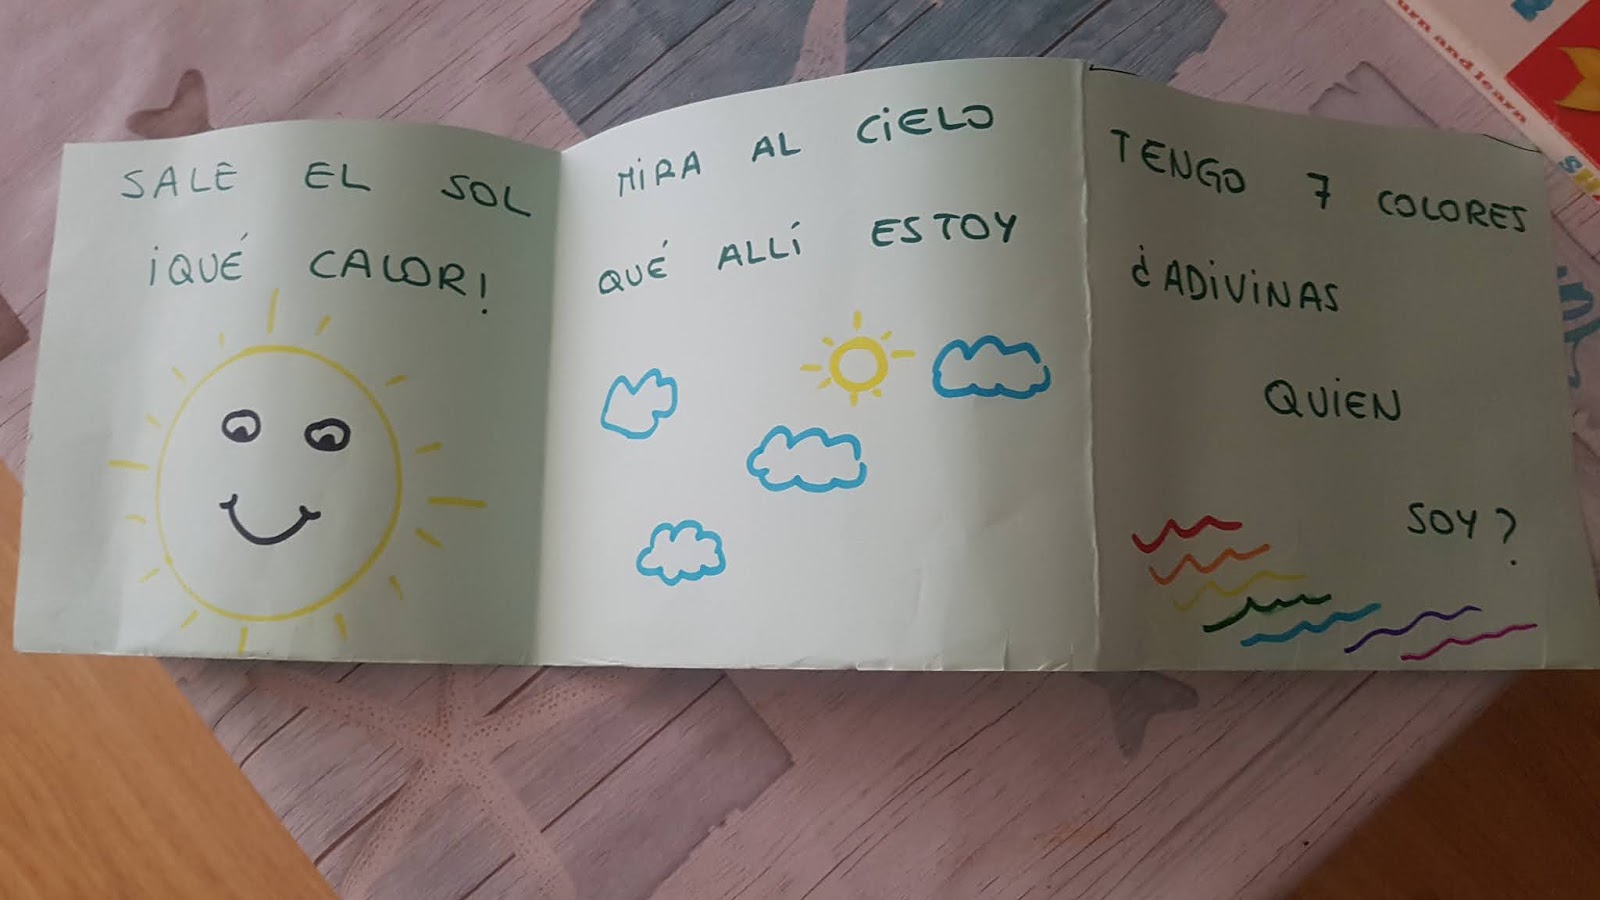 SALE EL SOL
¡QUÉ CALOR!
MIRA AL CIELO
QUÉ ALLÍ ESTOY
TENGO 7 COLORES
¿ADIVINAS
QUIEN
SOY?
urn and learn